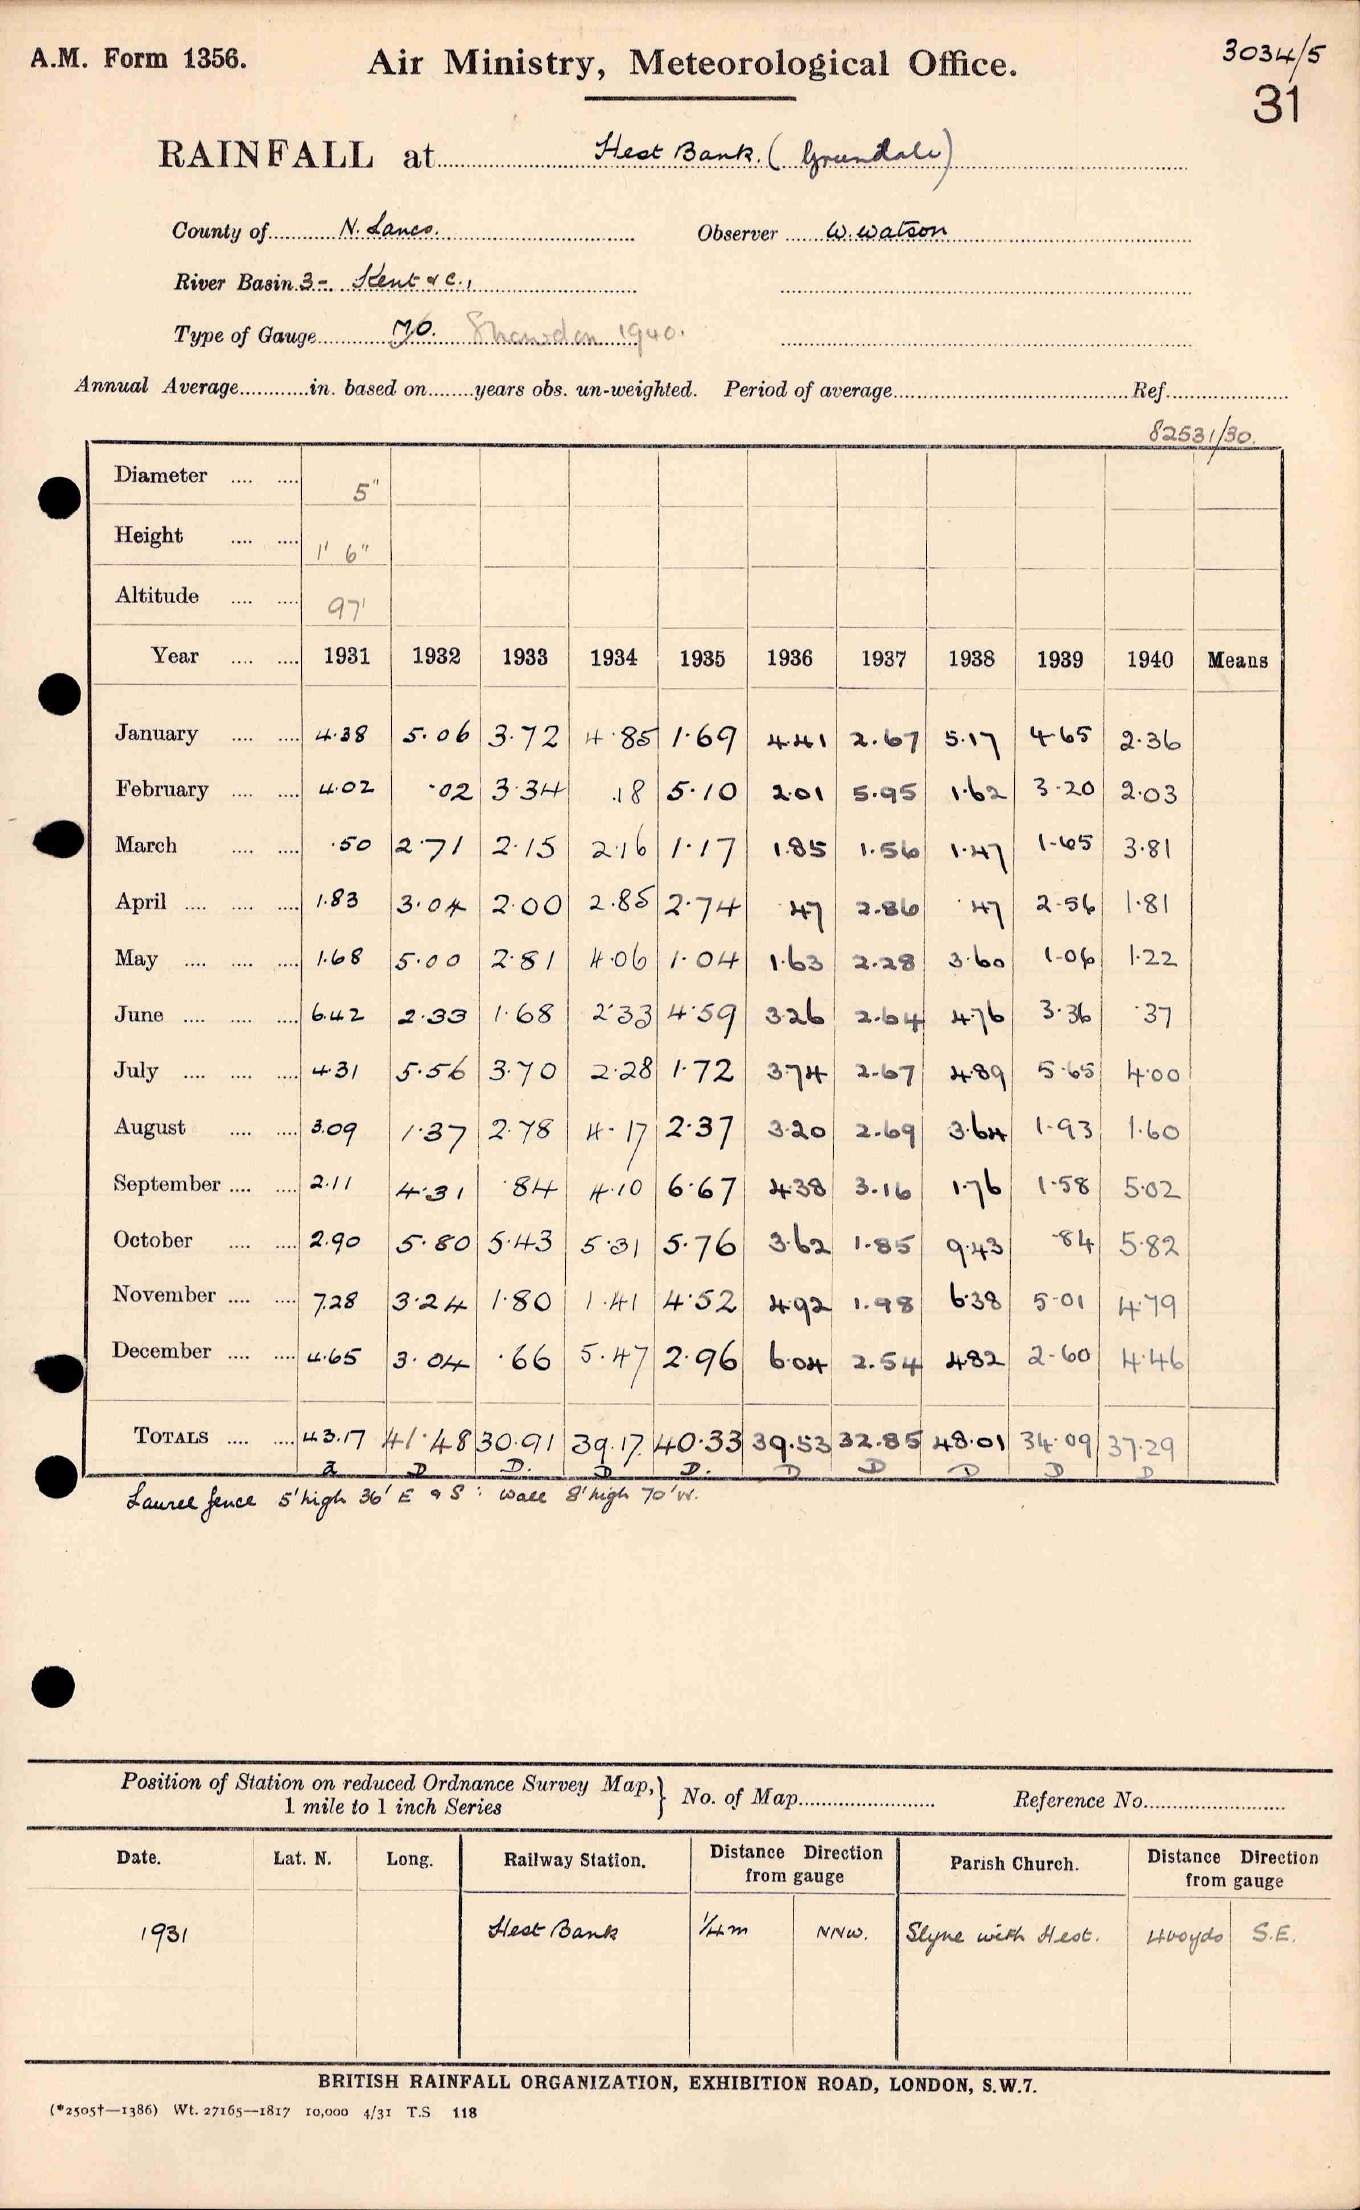 A.M. Form 1356.
Air Ministry, Meteorological Office.
3034/5
31
RAINFALL at Hest Bank. (
County of N. Lancs. Observer W. Watson
River Basin 3- Kent &c.,
Type of Gauge MO. 1940.
Annual Average in. based on years obs. un-weighted. Period of average Ref.
82531/30.
Diameter 5"
Height 1' 6"
Altitude 97'
Year 1931 1932 1933 1934 1935 1936 1937 1938 1939 1940 Means
January 4.38 5.06 3.72 4.85 1.69 4.41 2.67 5.17 4.65 2.36
February 4.02 .02 3.34 .18 5.10 2.01 5.95 1.62 3.20 2.03
March .50 2.71 2.15 2.16 1.17 1.85 1.56 1.47 1.65 3.81
April 1.83 3.04 2.00 2.85 2.74 47 2.86 .47 2.56 1.81
May 1.68 5.00 2.81 4.06 1.04 1.63 2.28 3.60 1.06 1.22
June 6.42 2.33 1.68 2.33 4.59 3.26 2.64 4.76 3.36 .37
July 4.31 5.56 3.70 2.28 1.72 3.74 2.67 4.89 5.65 4.00
August 3.09 1.37 2.78 4.17 2.37 3.20 2.69 3.64 1.93 1.60
September 2.11 4.31 .84 4.10 6.67 4.38 3.16 1.76 1.58 5.02
October 2.90 5.80 5.43 5.31 5.76 3.62 1.85 9.43 .84 5.82
November 7.28 3.24 1.80 1.41 4.52 4.92 1.98 6.38 5.01 4.79
December 4.65 3.04 .66 5.47 2.96 6.04 2.54 4.82 2.60 4.46
TOTALS 43.17 41.48 30.91 39.17 40.33 39.53 32.85 48.01 34.09 37.29
D D. D D. D D D D D
Laurel fence 5' high 36' E & S: wall 8' high 70' W.
Position of Station on reduced Ordnance Survey Map, 1 mile to 1 inch Series } No. of Map Reference No.
Date. Lat. N. Long. Railway Station. Distance Direction from gauge Parish Church. Distance Direction from gauge
1931 Hest Bank 1/4 m NNW. Slyne with Hest. 400 yds S.E.
BRITISH RAINFALL ORGANIZATION, EXHIBITION ROAD, LONDON, S.W.7.
(*2505†—1386) Wt. 27165—1817 10,000 4/31 T.S 118